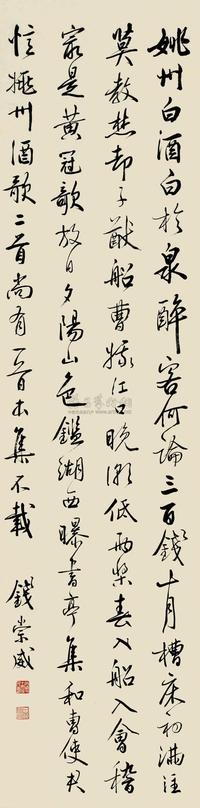 姚州白酒白於泉醉客何論三百錢十月槽床初滿注
莫教愁却子猷船曹娥江口晚潮低兩槳春入船入會稽
最是黃冠歌放日夕陽山色鑑湖西曝書亭集和曹使君
憶姚州酒歌二首尚有一首本集不載 錢崇威